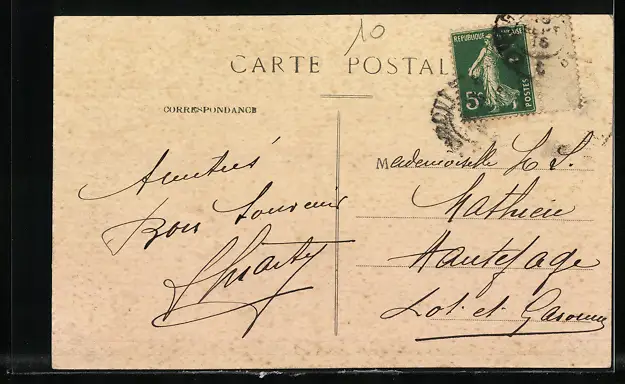 10
CARTE POSTALE
REPUBLIQUE FRANÇAISE
5c
POSTES
CORRESPONDANCE
Amitiés
Bon Souvenir
Mademoiselle L. S.
Mathieu
Hautefage
Lot-et-Garonne